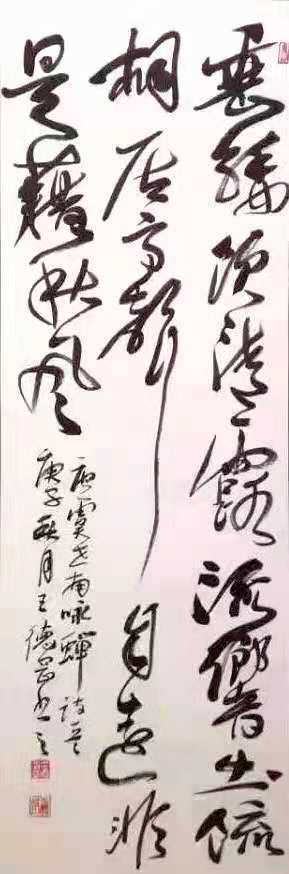 垂緌飲清露流響出疏
桐居高聲自遠非
是藉秋風
唐虞世南咏蟬詩
庚子秋月王德书之